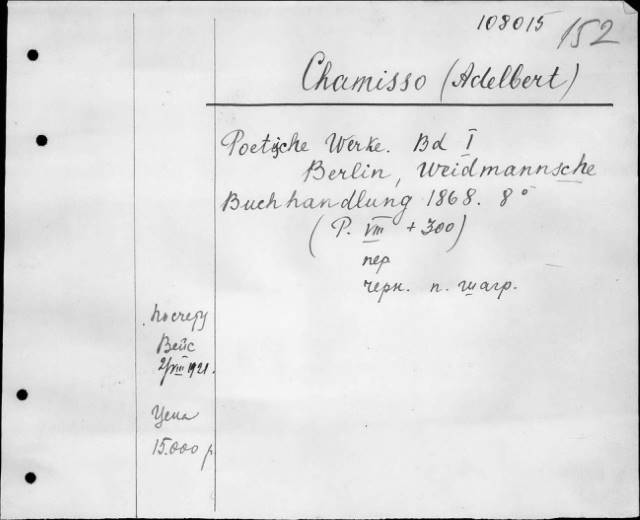 108015 152
Chamisso (Adelbert)
Poetische Werke. Bd I
Berlin, Weidmannsche
Buchhandlung 1868. 8°
(P. VIII + 300)
пер
черн. п. шагр.
Вейс
2/VIII 1921.
Цена
15.000 р